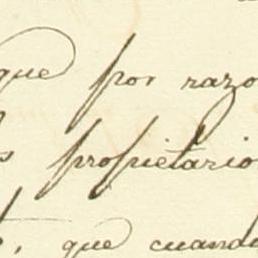 que por razo
s propietario
, que cuando